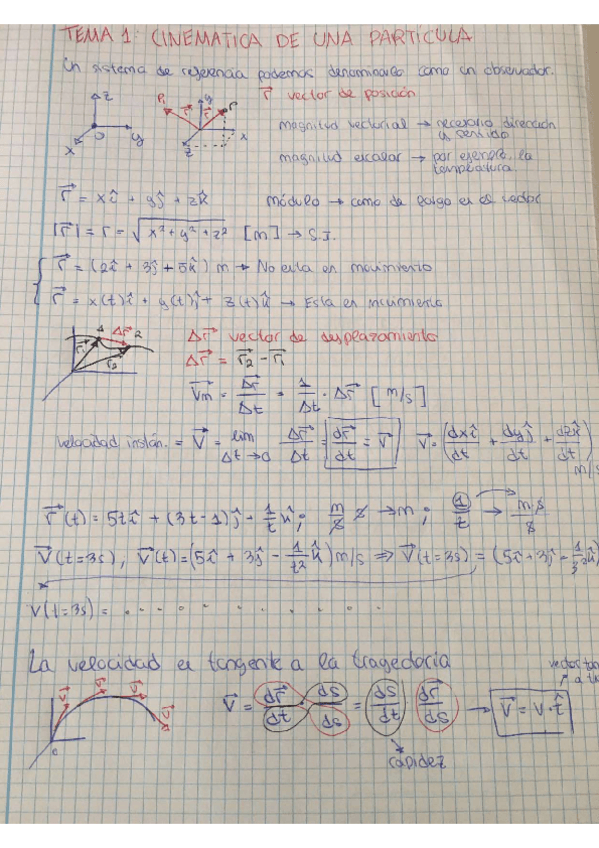 TEMA 1: CINEMATICA DE UNA PARTICULA
Un sistema de referencia podemos denominarlo como un observador.
z y x O
P₁ y r⃗ r⃗ P x z
r⃗ vector de posición
magnitud vectorial → necesario dirección y sentido
magnitud escalar → por ejemplo, la temperatura.
r⃗ = xî + yĵ + zk̂ módulo → como de largo es el vector
|r⃗| = r = √(x² + y² + z²) [m] → S.I.
r⃗ = (2î + 3ĵ + 5k̂) m → No esta en movimiento
r⃗ = x(t)î + y(t)ĵ + z(t)k̂ → Esta en movimiento
1 Δr⃗ 2 r⃗₁ r⃗₂
Δr⃗ vector de desplazamiento
Δr⃗ = r⃗₂ - r⃗₁
V⃗m = Δr⃗/Δt = 1/Δt · Δr⃗ [m/s]
velocidad instán. = V⃗ = lim Δt→0 Δr⃗/Δt = dr⃗/dt = V⃗ V⃗ = (dxî/dt + dyĵ/dt + dzk̂/dt) m/s
r⃗(t) = 5tî + (3t-1)ĵ + 1/t k̂; m/s s → m; 1/t → m·s/s
V⃗(t=3s), V⃗(t) = (5î + 3ĵ - 1/t² k̂) m/s ⇒ V⃗(t=3s) = (5î + 3ĵ - 1/3² k̂)
V(t=3s) = . . . . . . . . . .
La velocidad es tangente a la trayectoria
v⃗ v⃗ v⃗ v⃗ o
V⃗ = dr⃗/dt · ds/ds = ds/dt dr⃗/ds → V⃗ = v·t̂
rapidez